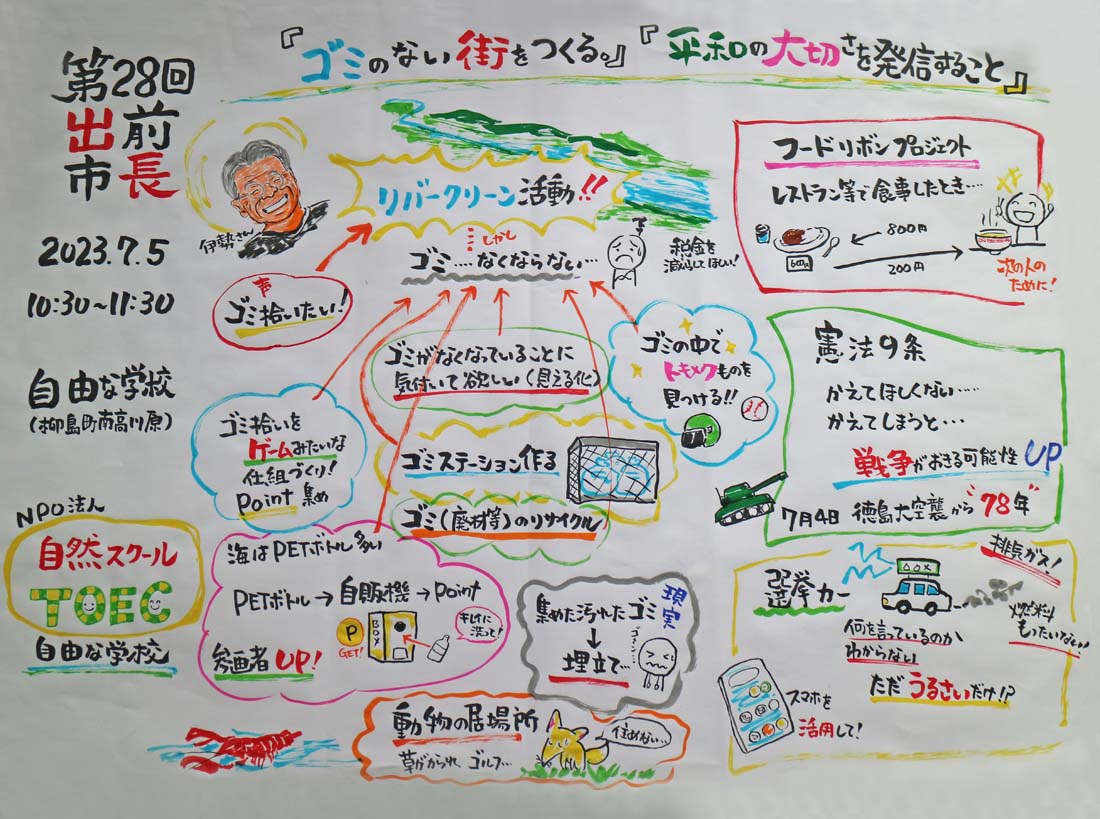 第28回
出前
市長
2023.7.5
10:30~11:30
自由な学校
(柳島町南高川原)
NPO法人
自然スクール
TOEC
自由な学校
『ゴミのない街をつくる。』『平和の大切さを発信すること』
伊勢さん
リバークリーン活動!!
しかし
ゴミ……なくならない…
税金を
減らしてほしい!
声
ゴミ拾いたい!
ゴミがなくなっていることに
気付いて欲しい(見える化)
ゴミの中で
トキメクものを
見つける!!
ゴミ拾いを
ゲームみたいな
仕組づくり!
Point 集め
ゴミステーション作る
ゴミ(廃材等)のリサイクル
海はPETボトル多い
PETボトル→自販機→Point
P
GET!
BOX
キレイに
洗って!
参画者UP!
現実
集めた汚れたゴミ
↓
埋立て…
動物の居場所
草がかられ、ゴルフ…
住めない…
フードリボンプロジェクト
レストラン等で食事したとき…
800円
600円
200円
次の人の
ために!
憲法9条
かえてほしくない……
かえてしまうと…
戦争がおきる可能性UP
7月4日 徳島大空襲から78年
選挙カー
排気ガス!
燃料
もったいない!
何を言っているのか
わからない
ただうるさいだけ!?
スマホを
活用して!